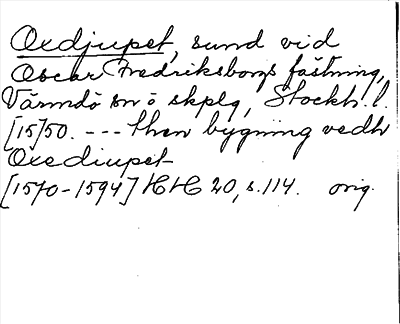 Oxdjupet, sund vid
Oscar Fredriksborgs fästning,
Värmdö sn o skplg, Stockh. l.
[15]50. --- then bygning vedh
Oxediupet
[1570-1594] HH 20, s. 114. orig.